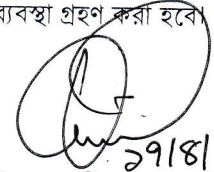 ব্যবস্থা গ্রহণ করা হবে।
২৭/৪/